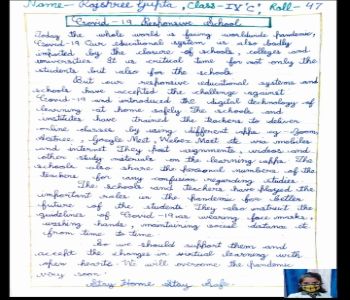 Name- Rajshree Gupta, Class-IX 'C', Roll- 47
Covid-19 Responsive School
Today the whole world is facing worldwide pandemic,
Covid-19. Our educational system is also badly
impacted by the closure of schools, colleges and
universities. It is critical time for not only the
students but also for the school.
But our responsive educational systems and
schools have accepted the challenge against
Covid-19 and introduced the digital technology of
learning at home safely. The schools and
institutes have trained the teachers to deliver
online classes by using different apps eg- Zoom,
Google Meet, Webex Meet etc via mobiles
and internet. They post assignments, videos and
other study materials on the learning apps. The
schools also share the personal numbers of the
teachers for any confusion regarding studies.
The schools and teachers have played the
important roles in the pandemic for better
future of the students. They also instruct the
guidelines of Covid-19 as wearing face masks,
washing hands, maintaining social distance etc
from time to time.
So we should support them and
accept the changes in virtual learning with
open hearts. We will overcome the pandemic
very soon.
Stay Home Stay Safe